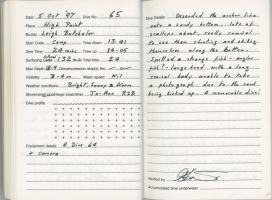 Date 5 Oct '97 Dive No. 65
Place High Point
Buddy Leigh Batchelor
Start Code Comp Time down 13.41
Dive Time 24 mins Time Up 14.05
Surfacing Code Bulk Total time 24
Max Depth
Visibility 3-4 m Water speed Nil
Weather conditions Bright, Sunny & Warm
Shore/small boat/charge boat/other Jo-Ann RIB
Dive profile
Equipment details A Dive 64
+ Camera
Dive Details Descended the anchor line
onto a sandy bottom, lots of
scallops about, really comical
to see them shutting and skiing
themselves along the bottom.
Spotted a strange fish - angler
fish? - large head with a long
body unable to take
a photograph due to the sand
being kicked up. A memorable dive!
Verified by
Accumulated dive underwater